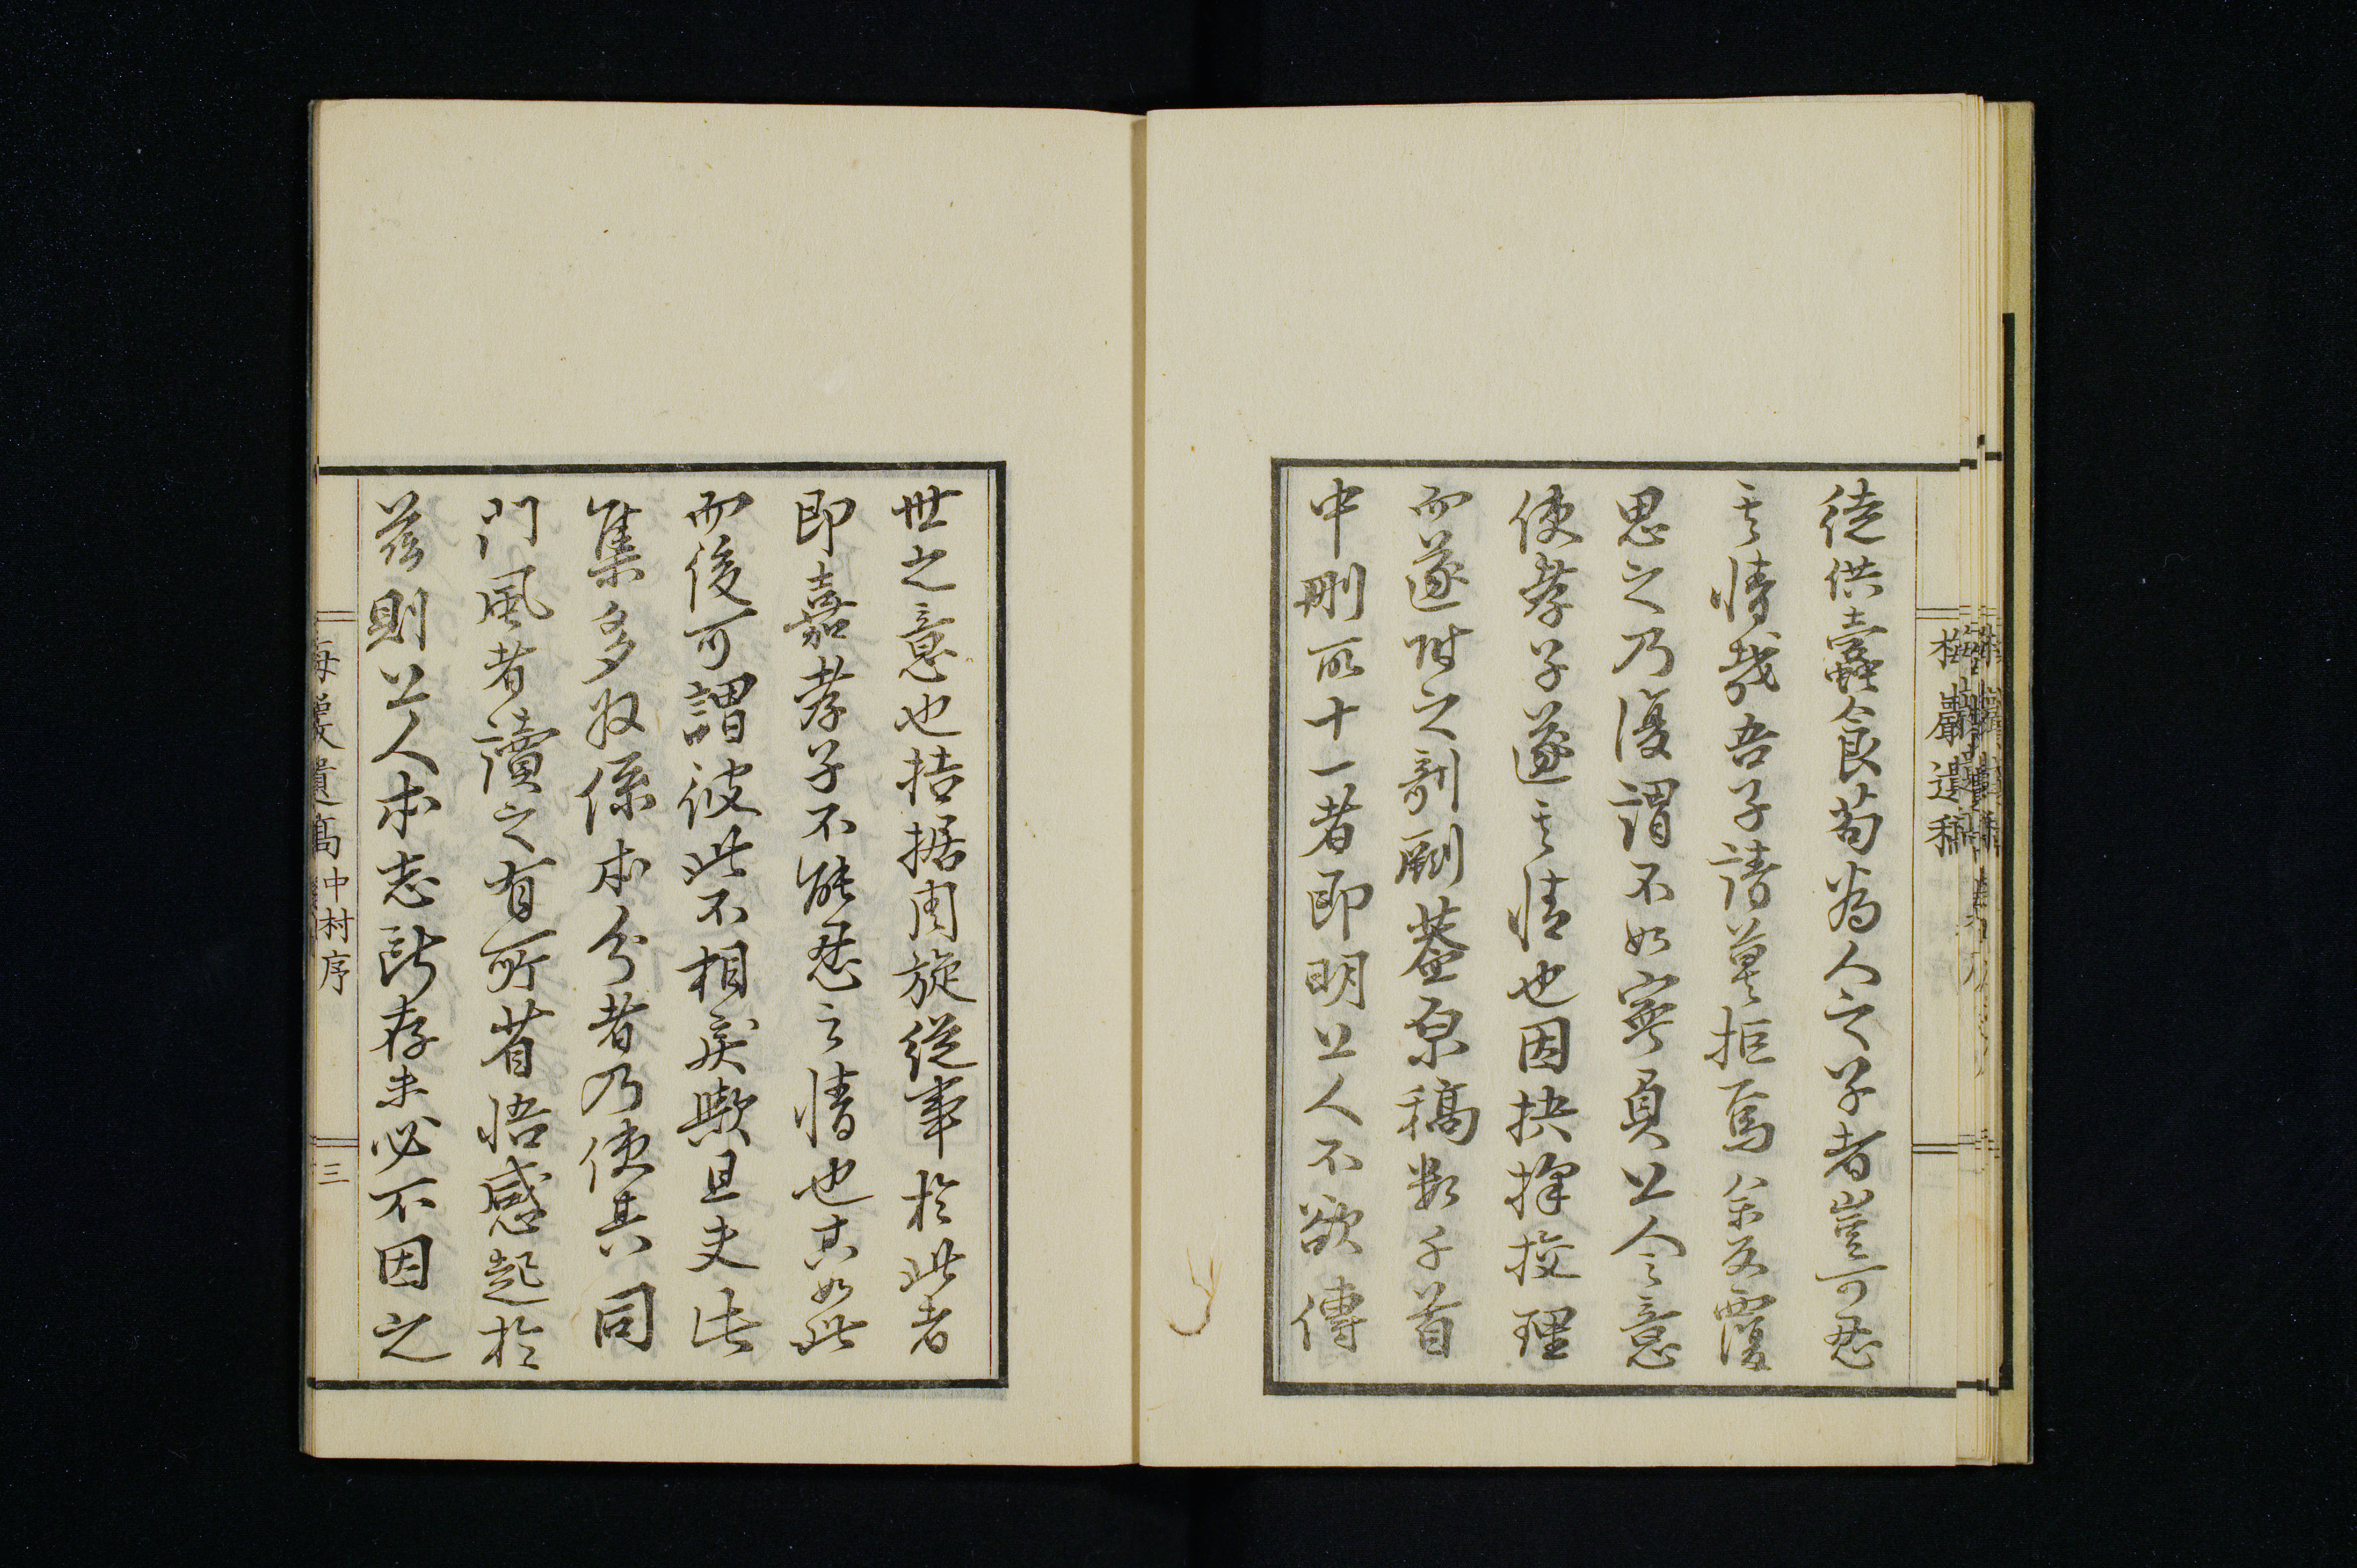 徒供蠹食苟為人之子者豈可忍
其情哉吾子請莫拒焉余反覆
思之乃復謂不如寧負公人之意
使孝子遂其情也因抉擇挍理
而遂附之剞劂蓋原稿數千首
中刪所十一者即明公人不欲傳
世之意也拮据周旋從事於此者
即嘉孝子不能忍之情也其如此
而後可謂彼此不相戾歟且夫此
集多收係本分者乃使其同
門風者讀之有所省悟感起於
茲則公人本志所存未必不因之
梅巖遺稿
中村序
三